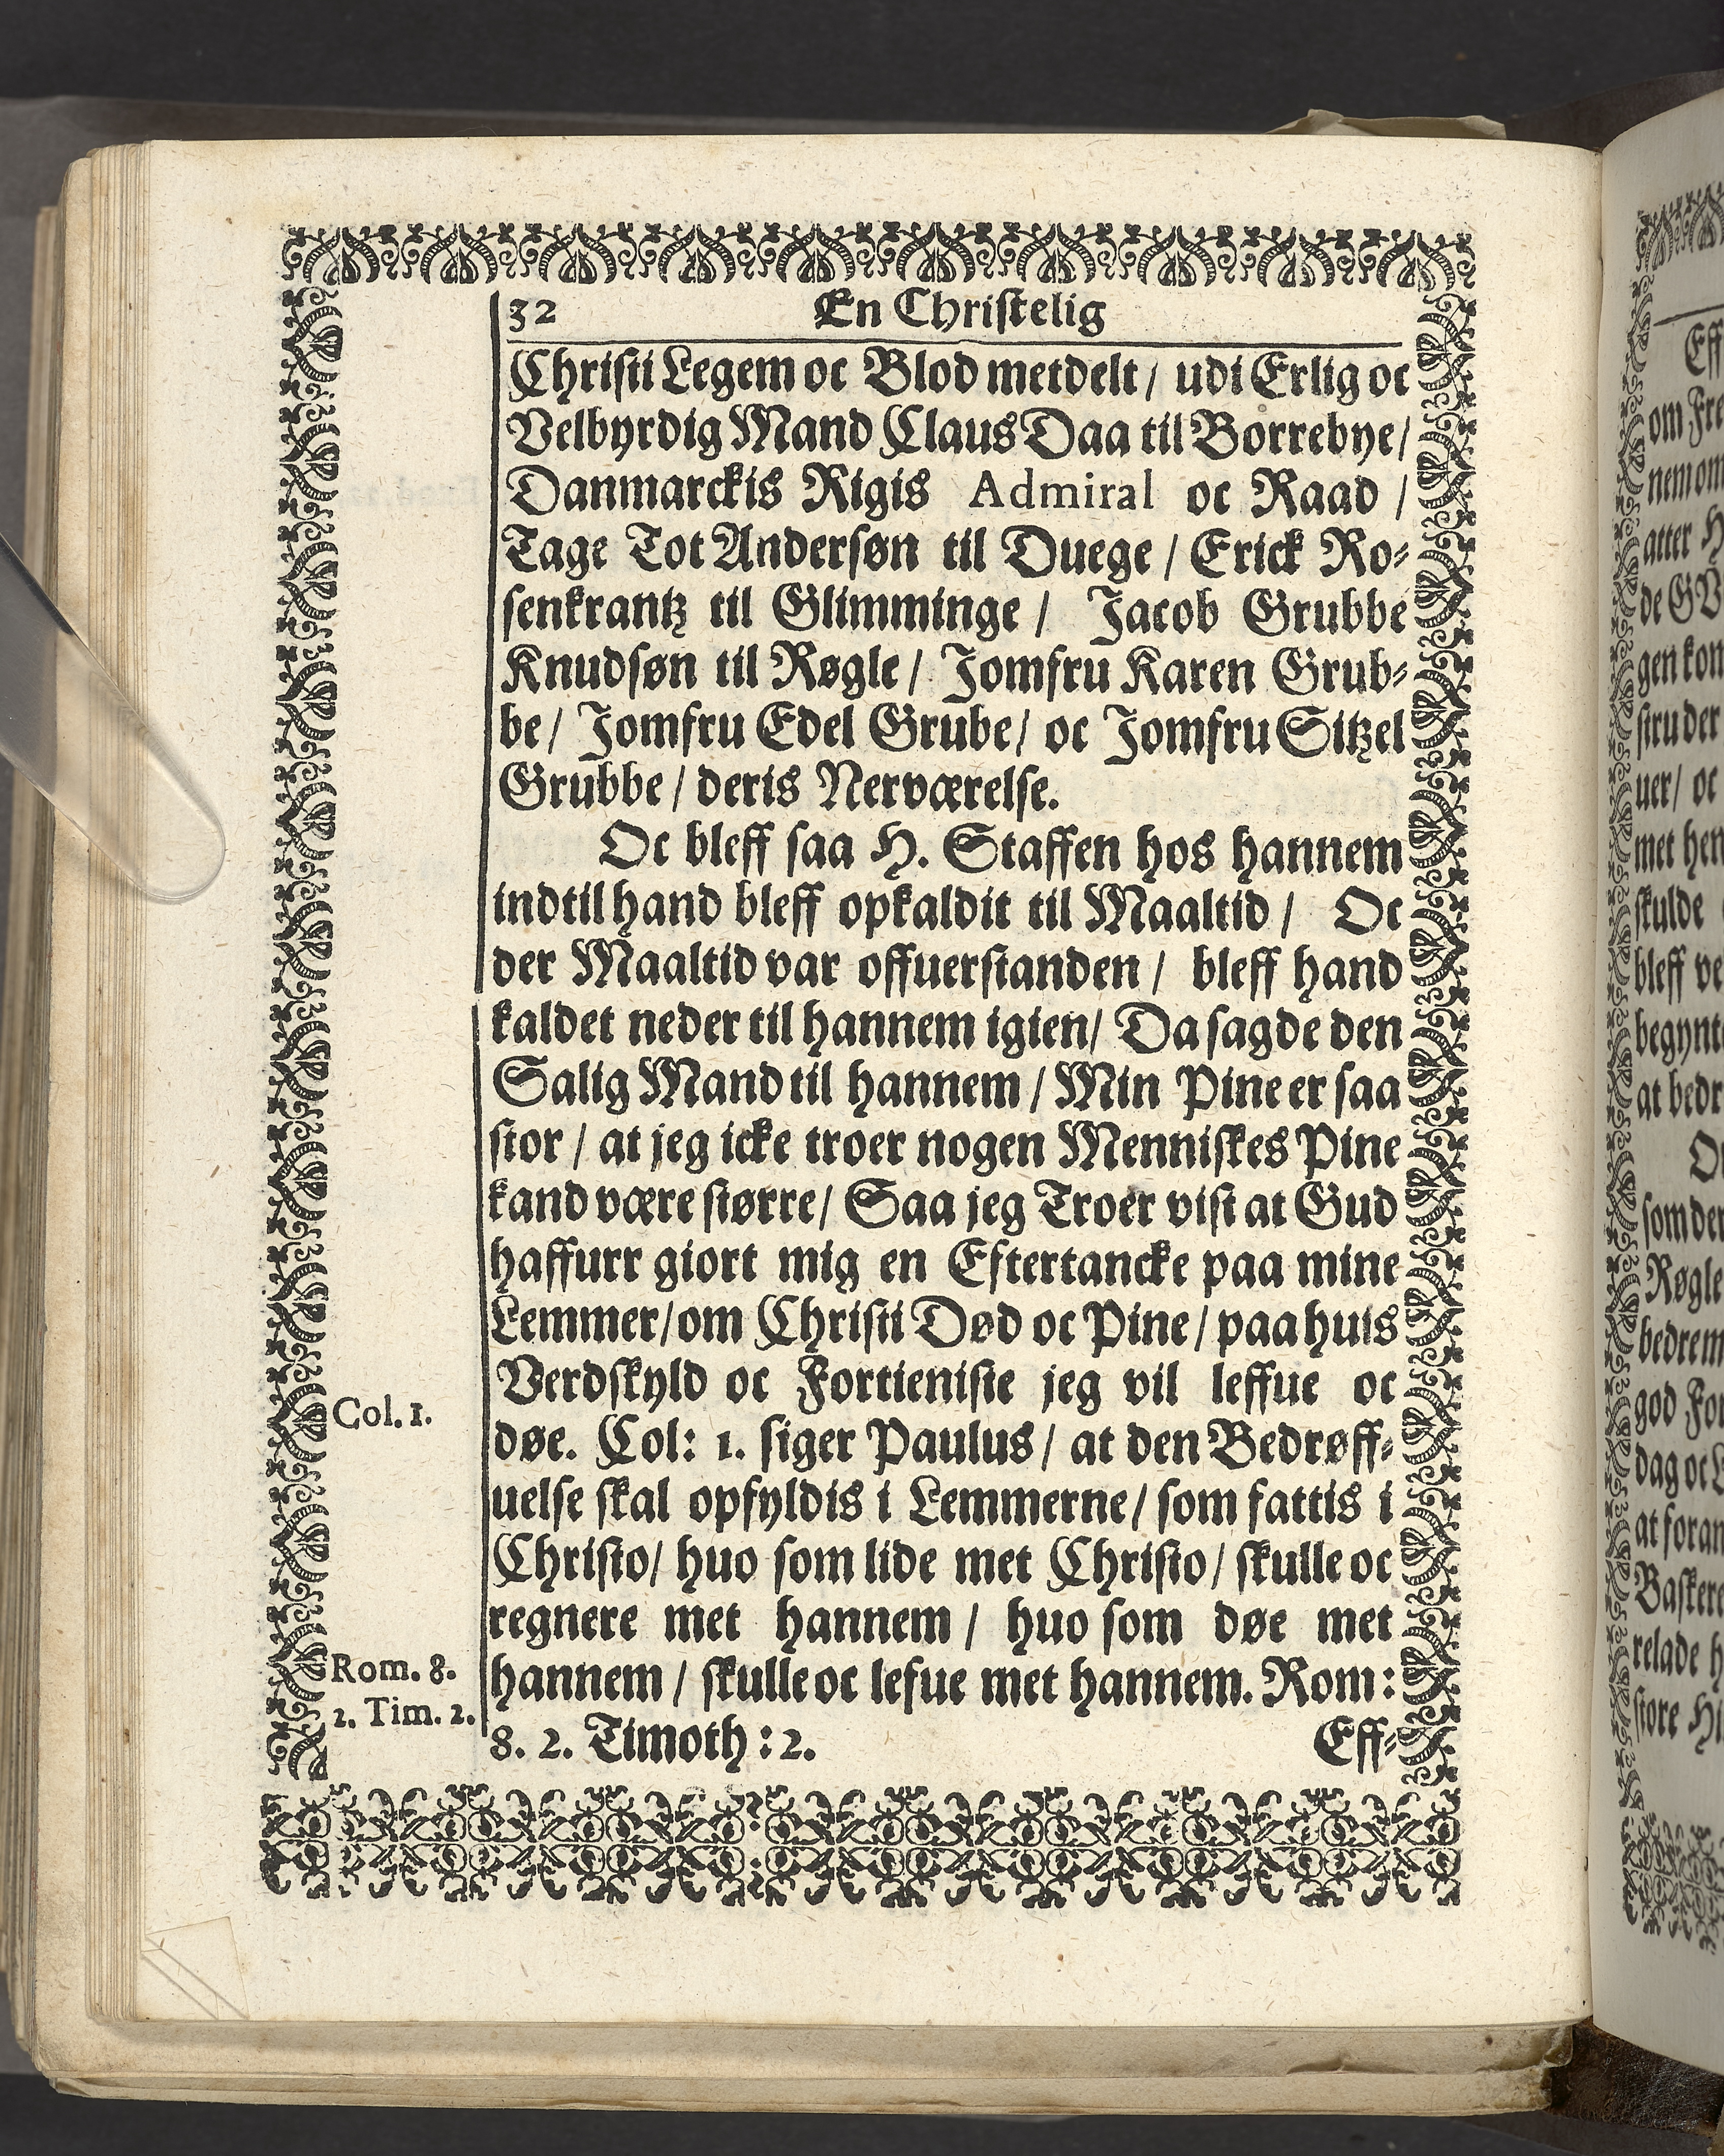 32 En Christelig
Christi Legem oc Blod metdelt / udi Erlig oc
Velbyrdig Mand Claus Daa til Borrebye /
Danmarckis Rigis Admiral oc Raad /
Tage Tot Andersøn til Duege / Erick Ro-
senkrantz til Glimminge / Jacob Grubbe
Knudsøn til Røgle / Jomfru Karen Grub-
be / Jomfru Edel Grube / oc Jomfru Sitzel
Grubbe / deris Nerværelse.
Oc bleff saa H. Staffen hos hannem
indtil hand bleff opkaldit til Maaltid / Oc
der Maaltid var offuerstanden / bleff hand
kaldet neder til hannem igien / Da sagde den
Salig Mand til hannem / Min Pine er saa
stor / at jeg icke troer nogen Menniskes Pine
kand være større / Saa jeg Troer vist at Gud
haffurr giort mig en Eftertancke paa mine
Lemmer / om Christi Død oc Pine / paa huis
Verdskyld oc Fortieniste jeg vil leffue oc
Col. 1.
døe. Col: 1. siger Paulus / at den Bedrøff-
uelse skal opfyldis i Lemmerne / som fattis i
Christo / huo som lide met Christo / skulle oc
regnere met hannem / huo som døe met
Rom. 8.
hannem / skulle oc lefue met hannem. Rom:
2. Tim. 2.
8. 2. Timoth: 2. Eff-
Eff
om Fre
nem om
atter H
de GV
gen kom
uer / oc
met hen
skulde
bleff ve
begynt
at bedr
som der
Røgle
bedrem
god For
dag oc
at foran
relade h
store Hi